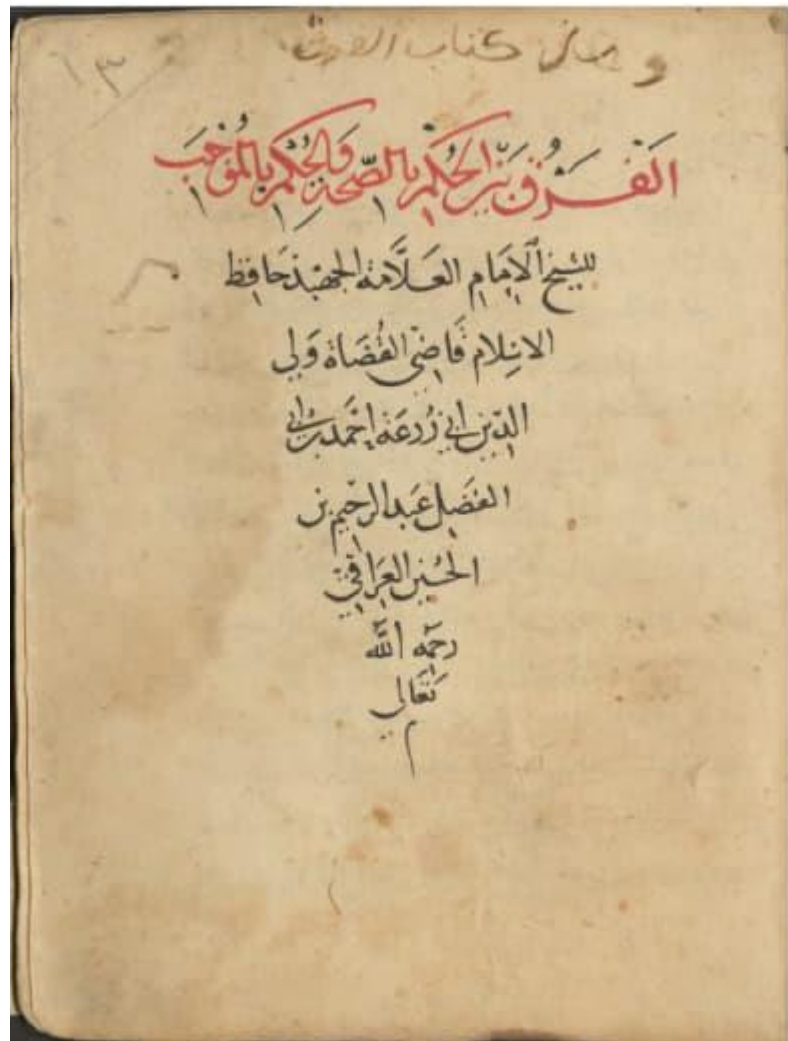 كتاب
١٣
الفَرْق بَيْن الحُكْم بالصّحة وَالحُكْم بالمُوْجَب
للشيخ الامَام العَلَّامة الجهبذ حَافظ
الاسلام قَاضى القُضَاة وَلي
الدّين ابي زُرعَة احْمَد بن ابي
الفضَل عَبد الرحيم بن
الحسُين العِرَاقيّ
رحمَه الله
تعَالي
م